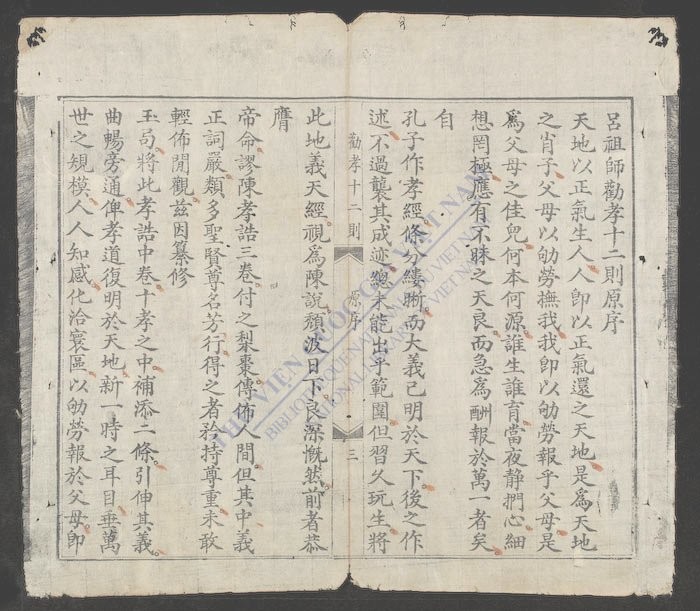 呂祖師勸孝十二則原序
天地以正氣生人人卽以正氣還之天地是爲天地
之肖子父母以劬勞撫我我卽以劬勞報乎父母是
爲父母之佳兒何本何源誰生誰育當夜静捫心細
想罔極應有不昧之天良而急爲酬報於萬一者矣
自
孔子作孝經條分縷晣而大義已明於天下後之作
述不過襲其成迹總未能出乎範圍但習久玩生將
勸孝十二則
原序
三
此地義天經視爲陳說頹波日下良深慨𫤌前者恭
膺
帝命謬陳孝誥三卷付之梨棗傳佈人間但其中義
正詞嚴類多聖賢尊名芳行得之者矜持尊重未敢
輕佈閒觀兹因纂修
玉局將此孝誥中卷十孝之中補添二條引伸其義
曲暢旁通俾孝道復明於天地新一時之耳目垂萬
世之規模人人知感化洽寰區以劬勞報於父母卽
THƯ VIỆN QUỐC GIA VIỆT NAM
BIBLIOTHEQUE NATIONALE DU VIETNAM
NATIONAL LIBRARY OF VIETNAM